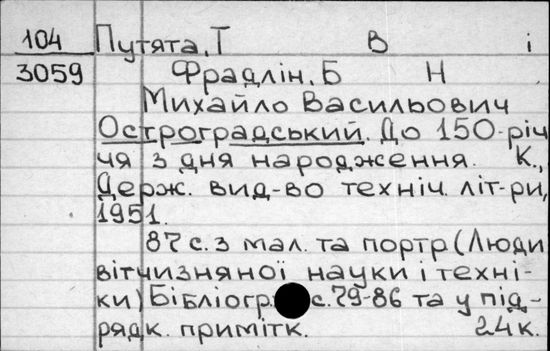 104 Путята, Т В і
3059 Фрадлін, Б Н
Михайло Васильович
Остроградський. До 150-річ
чя з дня народження. К.,
Держ. вид-во техніч. літ-ри,
1951.
87 с. з мал. та портр (Люди
вітчизняної науки і техні-
ки) Бібліогр. с. 79-86 та у під-
рядк. примітк. 24 к.